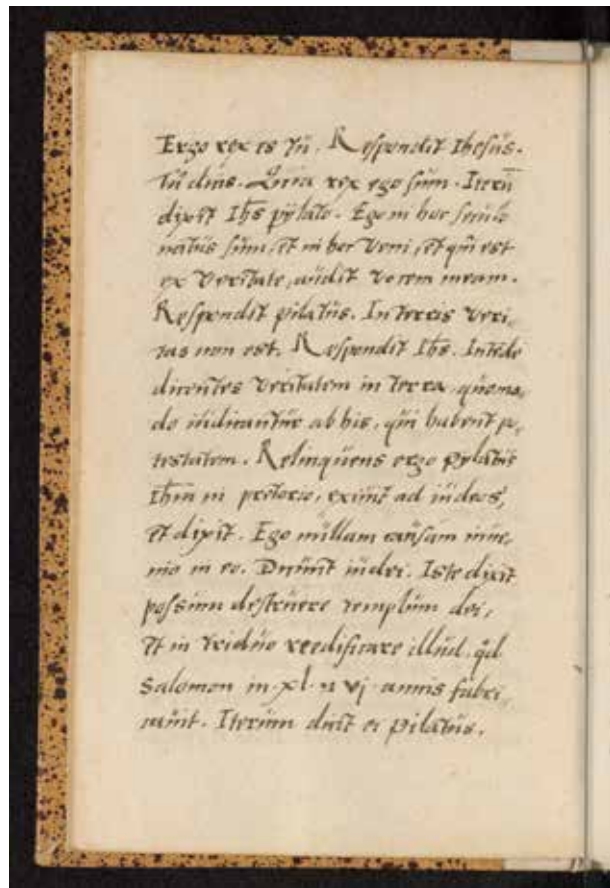 Ergo rex es tū. Respondit Ihesus.
Tu dicis. Quia rex ego sum. Iterū
dixit Ihs pylato. Ego in hoc seculo
natus sum, et in hoc veni, et qui est
ex veritate, audit vocem meam.
Respondit pilatus. In terris veri,
tas non est. Respondit Ihs. Intēde
dicentes veritatem in terra, quomo,
do iudicantur ab his, qui habent po,
testatem. Relinquens ergo pylatus
Ihm in pretorio, exiuit ad iudeos,
et dixit. Ego nullam causam inue,
nio in eo. Dicunt iudei. Iste dixit
possum destruere templum dei,
et in triduo reedificare illud, qd
Salomon in xl & vj annis fabri,
cauit. Iterum dicit ei pilatus.